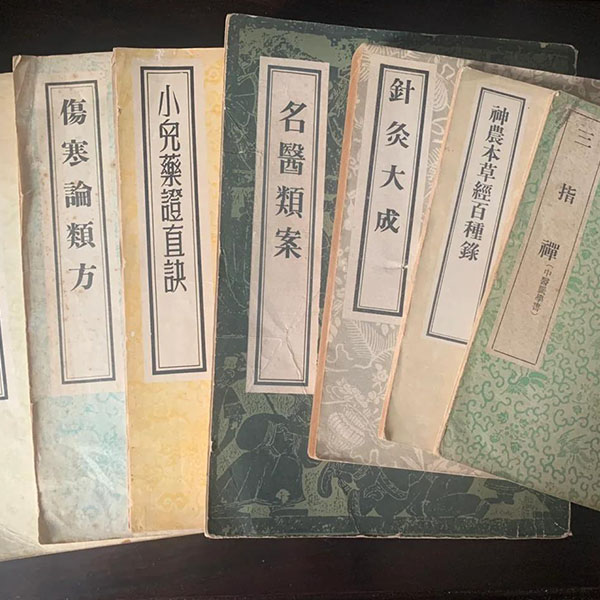 傷寒論類方
小兒藥證直訣
名醫類案
針灸大成
神農本草經百種錄
三指禪
(中醫脈學書)